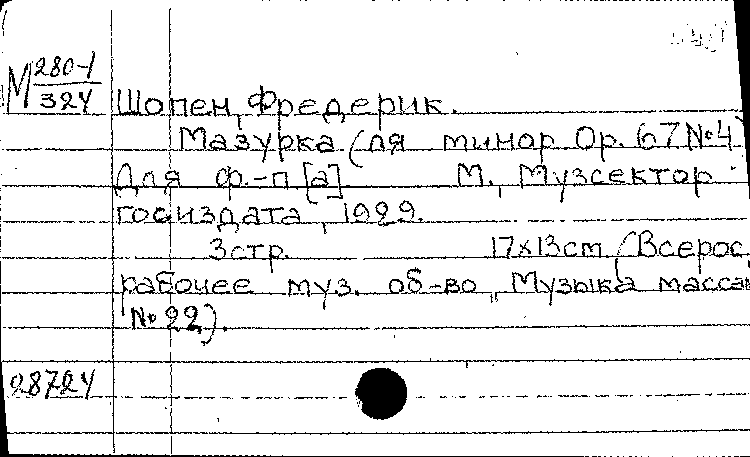 М 280-1
324
Шопен, Фредерик.
Мазурка (ля минор Ор. 67 №4)
Для ф.-п[а]. М., Музсектор
госиздата, 1929.
3стр. 17х13см (Всерос.
рабочее муз. об-во „Музыка массам
№22).
28724